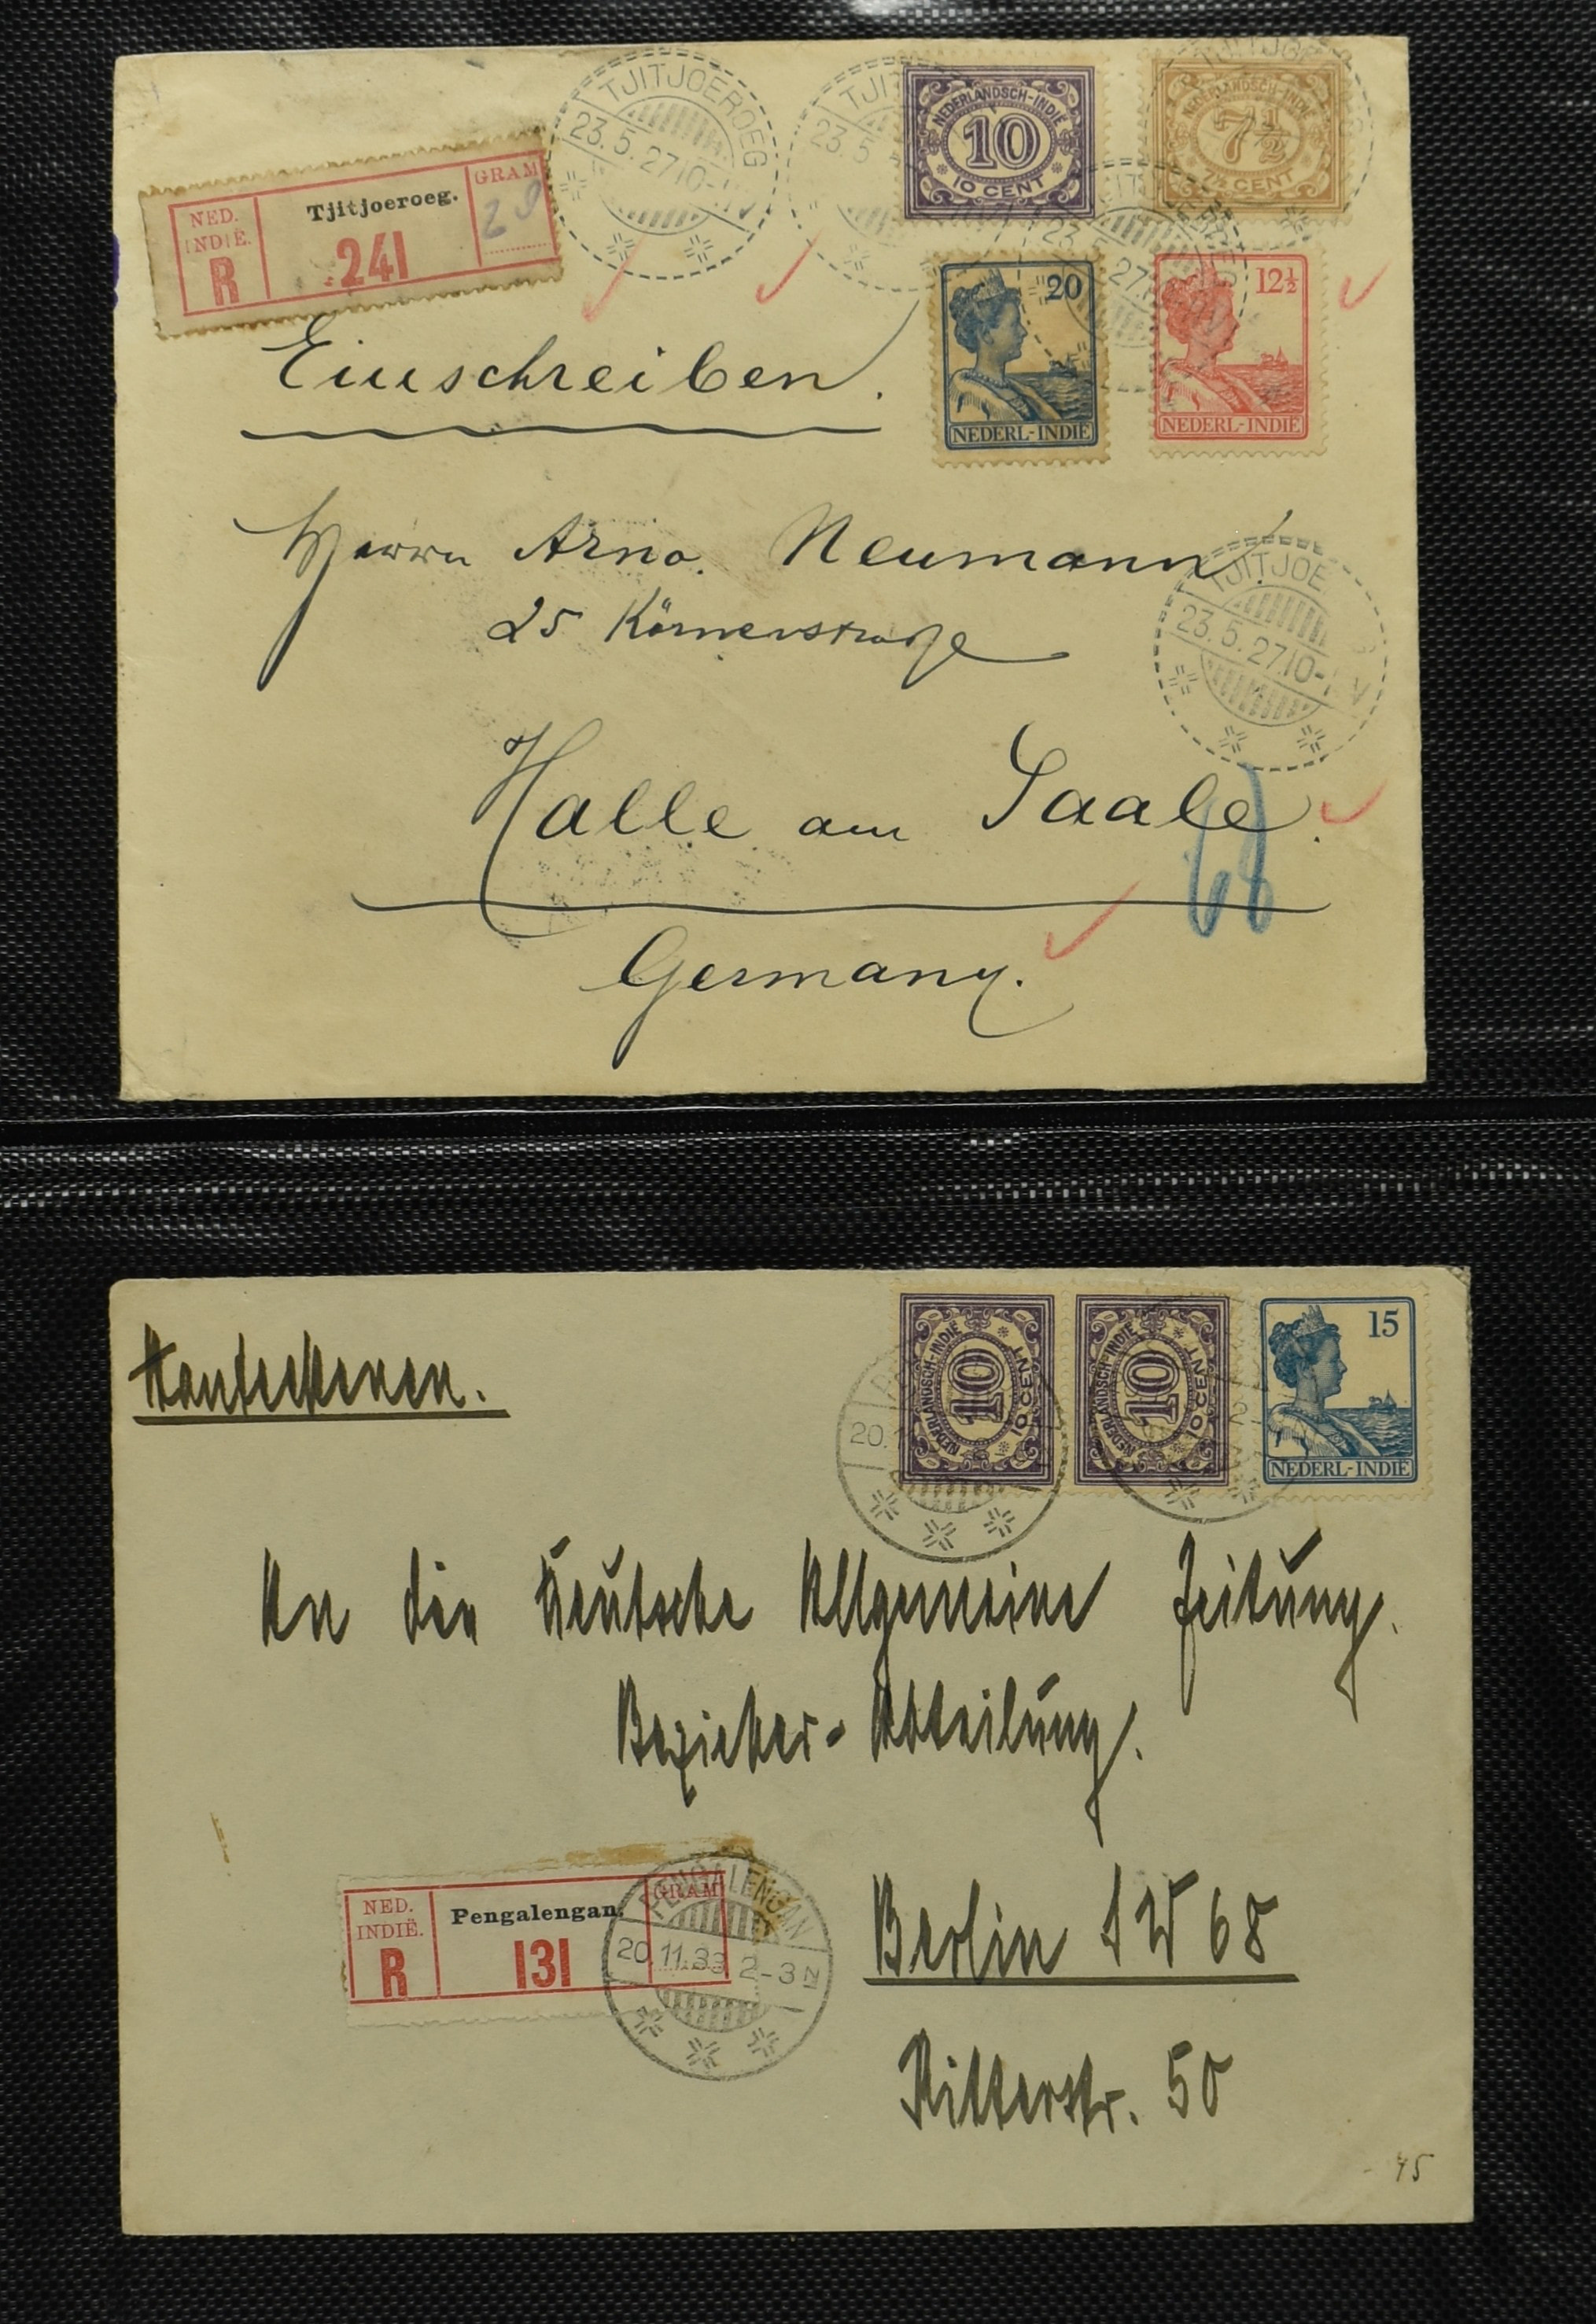 TJITJOEROEG
23.5.27.10-
TJIT
23.5
NEDERLANDSCH-INDIË
10
10 CENT
TJITJOE
NEDERLANDSCH-INDIË
7½
7½ CENT
NED. INDIË.
R
Tjitjoeroeg.
241
GRAM
20
NEDERL-INDIË
12½
NEDERL-INDIË
Einschreiben.
Herrn Arno. Neumann
25 Körnerstraße
TJITJOE
23.5.27.10- V
Halle am Saale.
68
Germany.
NEDERLANDSCH-INDIË
10
10 CENT
NEDERLANDSCH-INDIË
10
10 CENT
15
NEDERL-INDIË
20.
An die Deutsche Allgemeine Zeitung.
Bezieher-Abteilung.
NED. INDIË.
R
Pengalengan.
131
GRAM
PENGALENGAN
20.11.33 2-3 N
Berlin SW 68
Ritterstr. 50
45